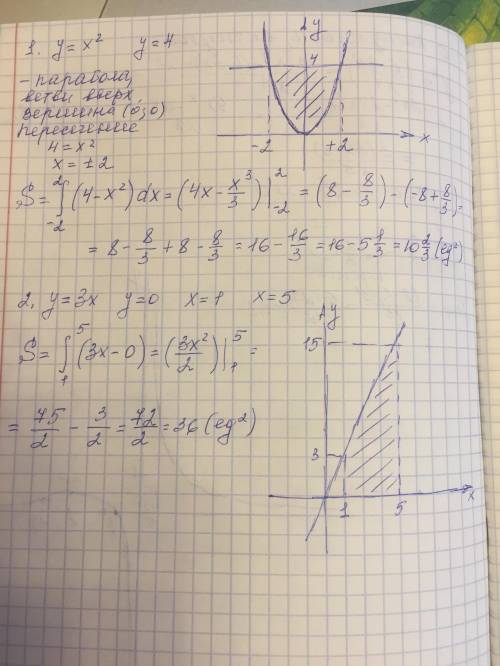 1. y = x² y = 4
- парабола,
ветви вверх,
вершина (0;0)
пересечение
4 = x²
x = ±2
y
4
-2 +2 x
S = ∫₋₂² (4 - x²) dx = (4x - x³/3) |₋₂² = (8 - 8/3) - (-8 + 8/3) =
= 8 - 8/3 + 8 - 8/3 = 16 - 16/3 = 16 - 5 1/3 = 10 2/3 (eg²)
2, y = 3x y = 0 x = 1 x = 5
S = ∫₁⁵ (3x - 0) = (3x²/2) |₁⁵ =
= 75/2 - 3/2 = 72/2 = 36 (eg²)
y
15
3
1 5 x